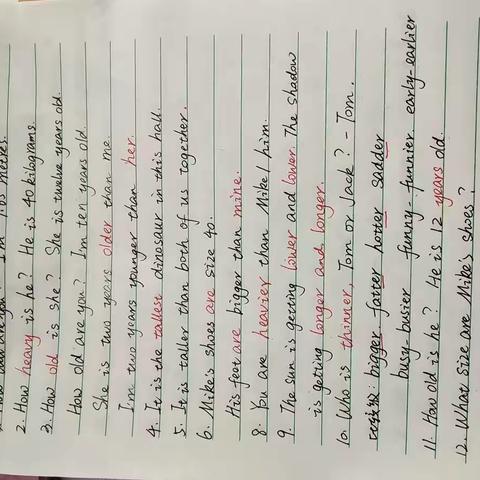 2. How heavy is he? He is 40 kilograms.
3. How old is she? She is twelve years old.
How old are you? I'm ten years old.
She is two years older than me.
I'm two years younger than her.
4. It is the tallest dinosaur in this hall.
5. It is taller than both of us together.
6. Mike's shoes are size 40.
His feet are bigger than mine.
8. You are heavier than Mike / him.
9. The sun is getting lower and lower. The shadow
is getting longer and longer.
10. Who is thinner, Tom or Jack? - Tom.
比较级: bigger fatter hotter sadder
busy-busier funny-funnier early-earlier
11. How old is he? He is 12 years old.
12. What size are Mike's shoes?